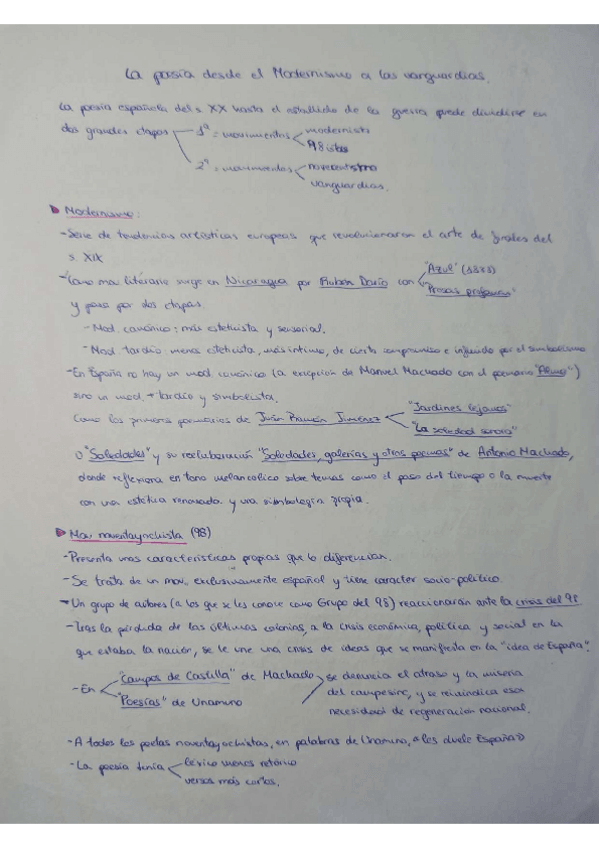 La poesía desde el Modernismo a las vanguardias.
La poesía española del s. XX hasta el estallido de la guerra puede dividirse en
dos grandes etapas 1ª = movimientos modernista
98istas
2ª = movimientos novecentismo
vanguardias.
Modernismo:
- Serie de tendencias artísticas europeas que revolucionaron el arte de finales del
s. XIX
- Como mov. literario surge en Nicaragua por Rubén Darío con "Azul" (1888)
"Prosas profanas"
y pasa por dos etapas.
- Mod. canónico: más esteticista y sensorial.
- Mod. tardío: menos esteticista, más íntimo, de cierto compromiso e influido por el simbolismo
- En España no hay un mod. canónico (a excepción de Manuel Machado con el poemario "Alma")
sino un mod. + tardío y simbolista.
Como los primeros poemarios de Juan Ramón Jiménez "Jardines lejanos"
"La soledad sonora"
O "Soledades" y su reelaboración "Soledades, galerías y otros poemas" de Antonio Machado,
donde reflexiona en tono melancólico sobre temas como el paso del tiempo o la muerte
con una estética renovada y una simbología propia.
Mov. noventayochista (98)
- Presenta unas características propias que lo diferencian.
- Se trata de un mov. exclusivamente español y tiene carácter socio-político.
- Un grupo de autores (a los que se les conoce como Grupo del 98) reaccionarán ante la crisis del 98
- Tras la pérdida de las últimas colonias, a la crisis económica, política y social en la
que estaba la nación, se le une una crisis de ideas que se manifiesta en la "idea de España".
- En "Campos de Castilla" de Machado se denuncia el atraso y la miseria
"Poesías" de Unamuno del campesino, y se reivindica esa
necesidad de regeneración nacional.
- A todos los poetas noventayochistas, en palabras de Unamuno, «les duele España»
- La poesía tenía léxico menos retórico
versos más cortos.